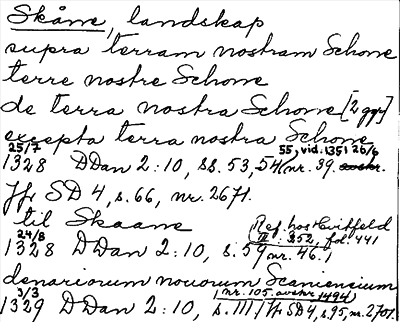 Skåne, landskap
supra terram nostram Schone
terre nostre Schone
de terra nostra Schone [2 ggr]
excepta terra nostra Schone
25/7 55, vid. 1351 26/6
1328 DDan 2:10, ss. 53, 54, nr. 39.
Jfr SD 4, s. 66, nr. 2671.
til Skaane
Ref. hos Hvitfeld
24/8 II: 352, fol. 441
1328 DDan 2:10, s. 59 nr. 46.1
denariorum nouorum Scaniensium
3/3 nr. 105. avskr 1494)
1329 DDan 2:10, s. 111 / Jfr SD 4, s. 95, nr. 2701.